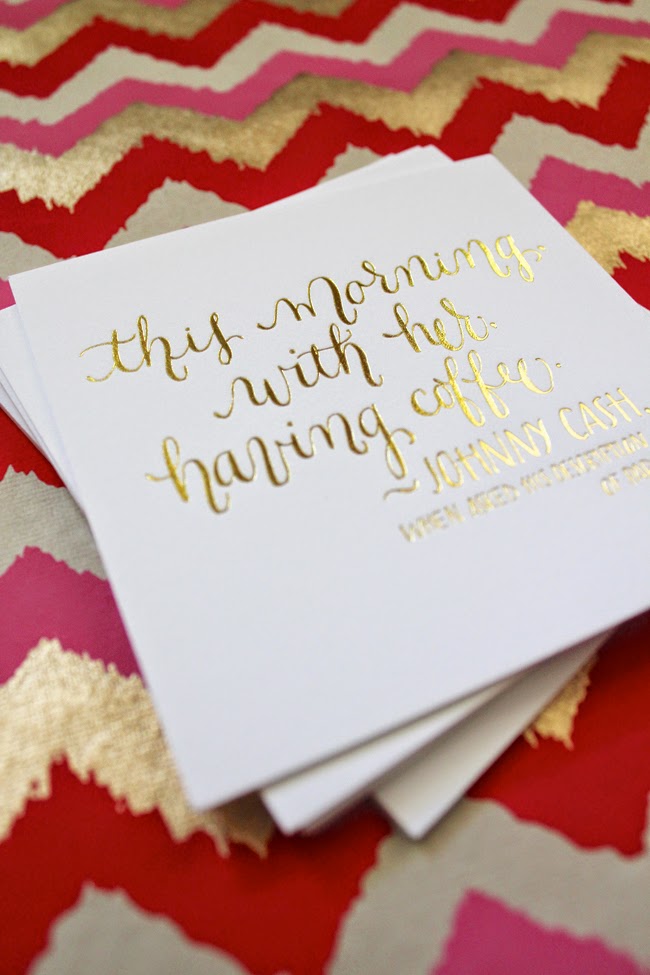 this morning,
with her.
having coffee.
~JOHNNY CASH,
WHEN ASKED HIS DESCRIPTION
OF